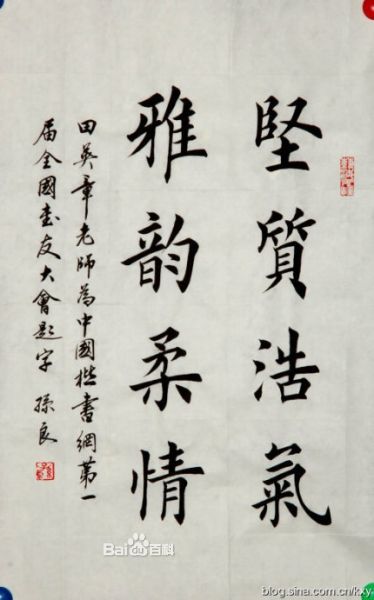 堅質浩氣
雅韵柔情
田英章老師為中國楷書網第一
届全國書友大會題字 孫良
Bai百科
blog.sina.com.cn/kxy